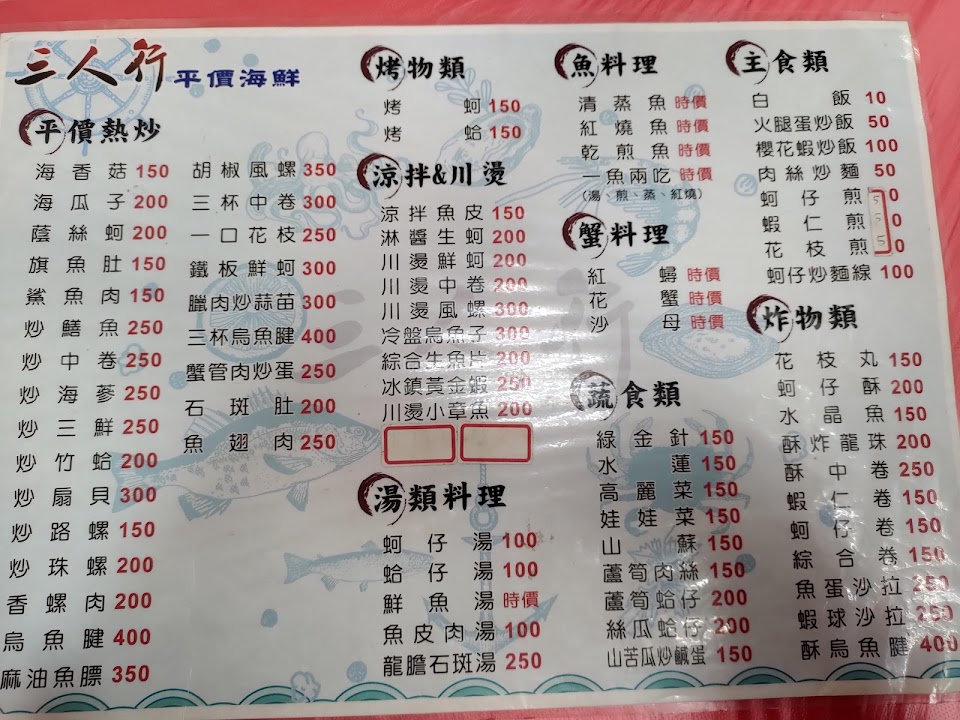 三人行平價海鮮
平價熱炒
海香菇150
海瓜子200
蔭絲蚵200
旗魚肚150
鯊魚肉150
炒鱔魚250
炒中卷250
炒海蔘250
炒三鮮250
炒竹蛤200
炒扇貝300
炒路螺150
炒珠螺200
香螺肉200
烏魚腱400
麻油魚膘350
胡椒風螺350
三杯中卷300
一口花枝250
鐵板鮮蚵300
臘肉炒蒜苗300
三杯烏魚腱400
蟹管肉炒蛋250
石斑肚200
魚翅肉250
烤物類
烤蚵150
烤蛤150
涼拌&川燙
涼拌魚皮150
淋醬生蚵200
川燙鮮蚵200
川燙中卷200
川燙風螺300
冷盤烏魚子300
綜合生魚片200
冰鎮黃金蝦250
川燙小章魚200
湯類料理
蚵仔湯100
蛤仔湯100
鮮魚湯時價
魚皮肉湯100
龍膽石斑湯250
魚料理
清蒸魚時價
紅燒魚時價
乾煎魚時價
一魚兩吃時價
(湯、煎、蒸、紅燒)
蟹料理
紅蟳時價
花蟹時價
沙母時價
蔬食類
綠金針150
水蓮150
高麗菜150
娃娃菜150
山蘇150
蘆筍肉絲150
蘆筍蛤仔200
絲瓜蛤仔200
山苦瓜炒鹹蛋150
主食類
白飯10
火腿蛋炒飯50
櫻花蝦炒飯100
肉絲炒麵50
蚵仔煎0
蝦仁煎0
花枝煎0
蚵仔炒麵線100
炸物類
花枝丸150
蚵仔酥200
水晶魚150
酥炸龍珠200
酥中卷250
蝦仁卷150
蚵仔卷150
綜合卷150
魚蛋沙拉250
蝦球沙拉250
酥烏魚腱400
三人行